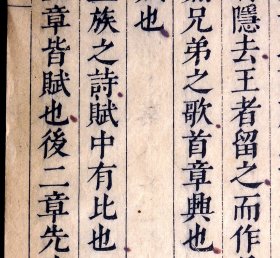 隱去王者留之而作
兄弟之歌首章興也
也
族之詩賦中有比也
章皆賦也後二章先